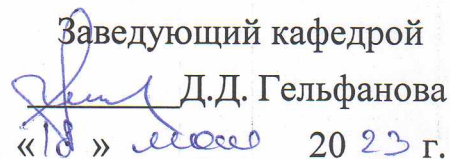 Заведующий кафедрой
Д.Д. Гельфанова
«18» мая 2023 г.